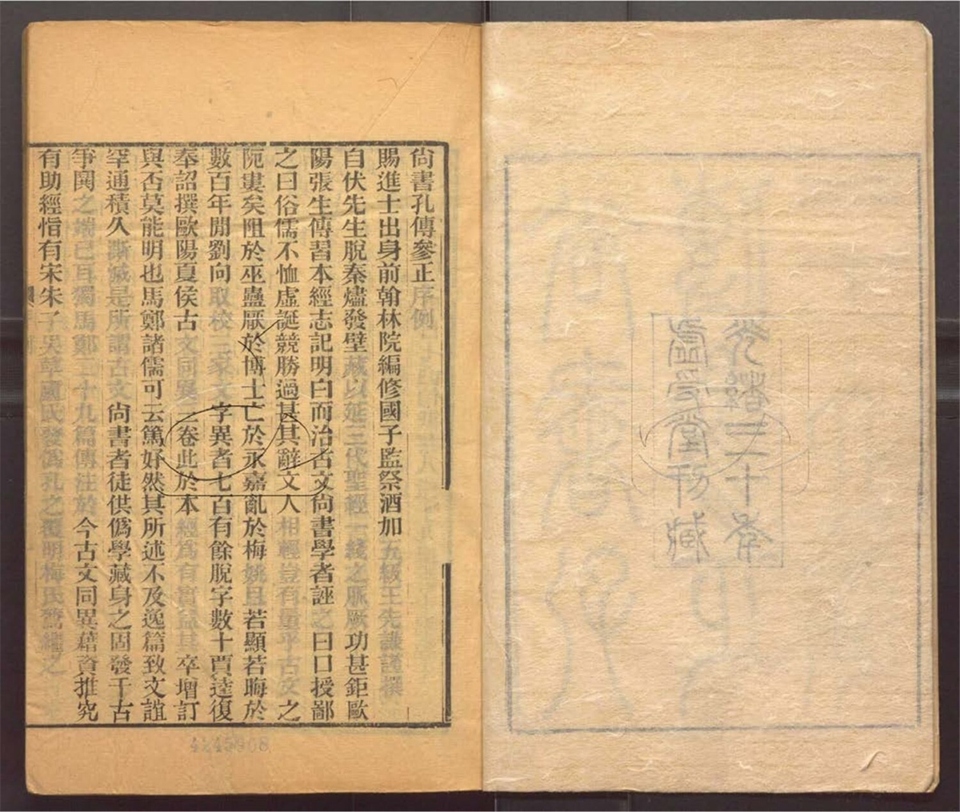 光緒三十年
虛受堂刊藏
尙書孔傳參正序例
賜進士出身前翰林院編修國子監祭酒加五級王先謙謹撰
自伏先生脫秦燼發壁藏以延三代聖經一綫之脈厥功甚鉅歐
陽張生傳習本經志記明白而治古文尙書學者誣之曰口授鄙
之曰俗儒不恤虛誕競勝過甚其辭文人相輕豈有量乎古文之
阸婁矣阻於巫蠱厭於博士亡於永嘉亂於梅姚且若顯若晦於
數百年閒劉向取校三家文字異者七百有餘脫字數十賈逵復
奉詔撰歐陽夏侯古文同異三卷此於本經爲有實益其卒增訂
與否莫能明也馬鄭諸儒可云篤好然其所述不及逸篇致文誼
罕通積久澌滅是所謂古文尙書者徒供僞學藏身之固發千古
爭鬨之端已耳獨馬鄭二十九篇傳注於今古文同異藉資推究
有助經恉有宋朱子吳草廬氏發僞孔之覆明梅氏鷟繼之
4145908